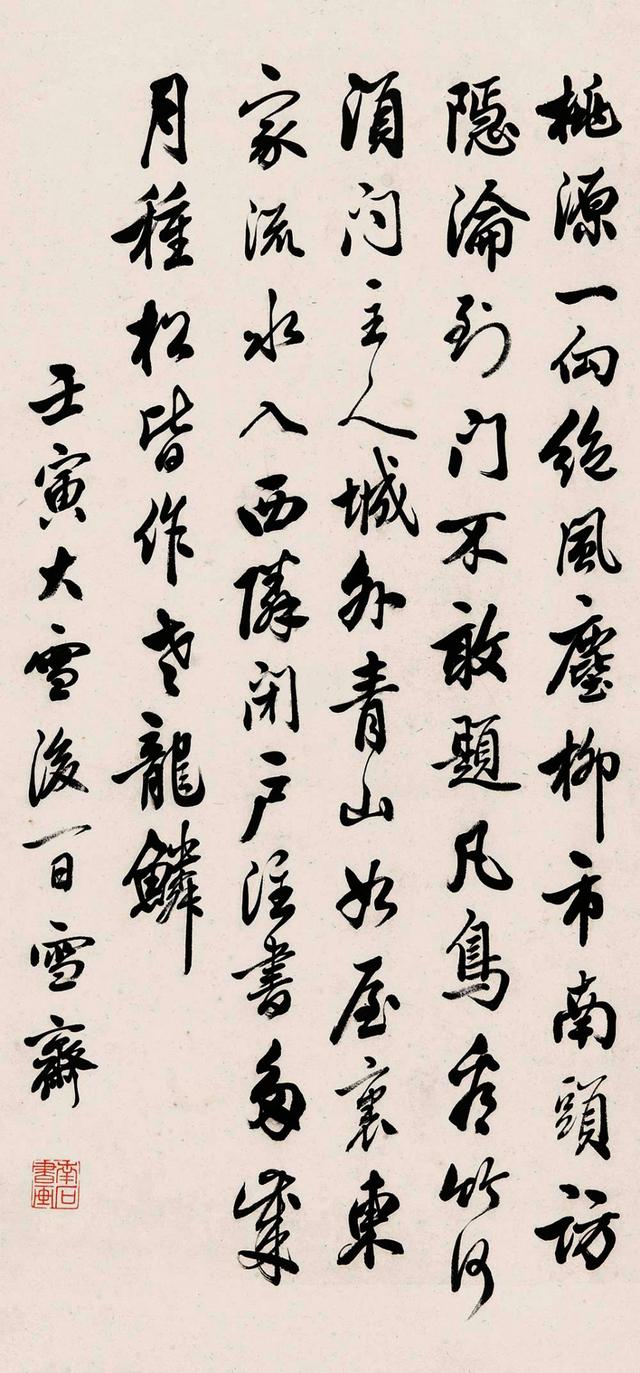 桃源一向絕風塵柳市南頭訪
隱淪到門不敢題凡鳥看竹何
須問主人城外青山如屋裏東
家流水入西隣閉戶注書多歲
月種松皆作老龍鱗
壬寅大雪後一日雪齋